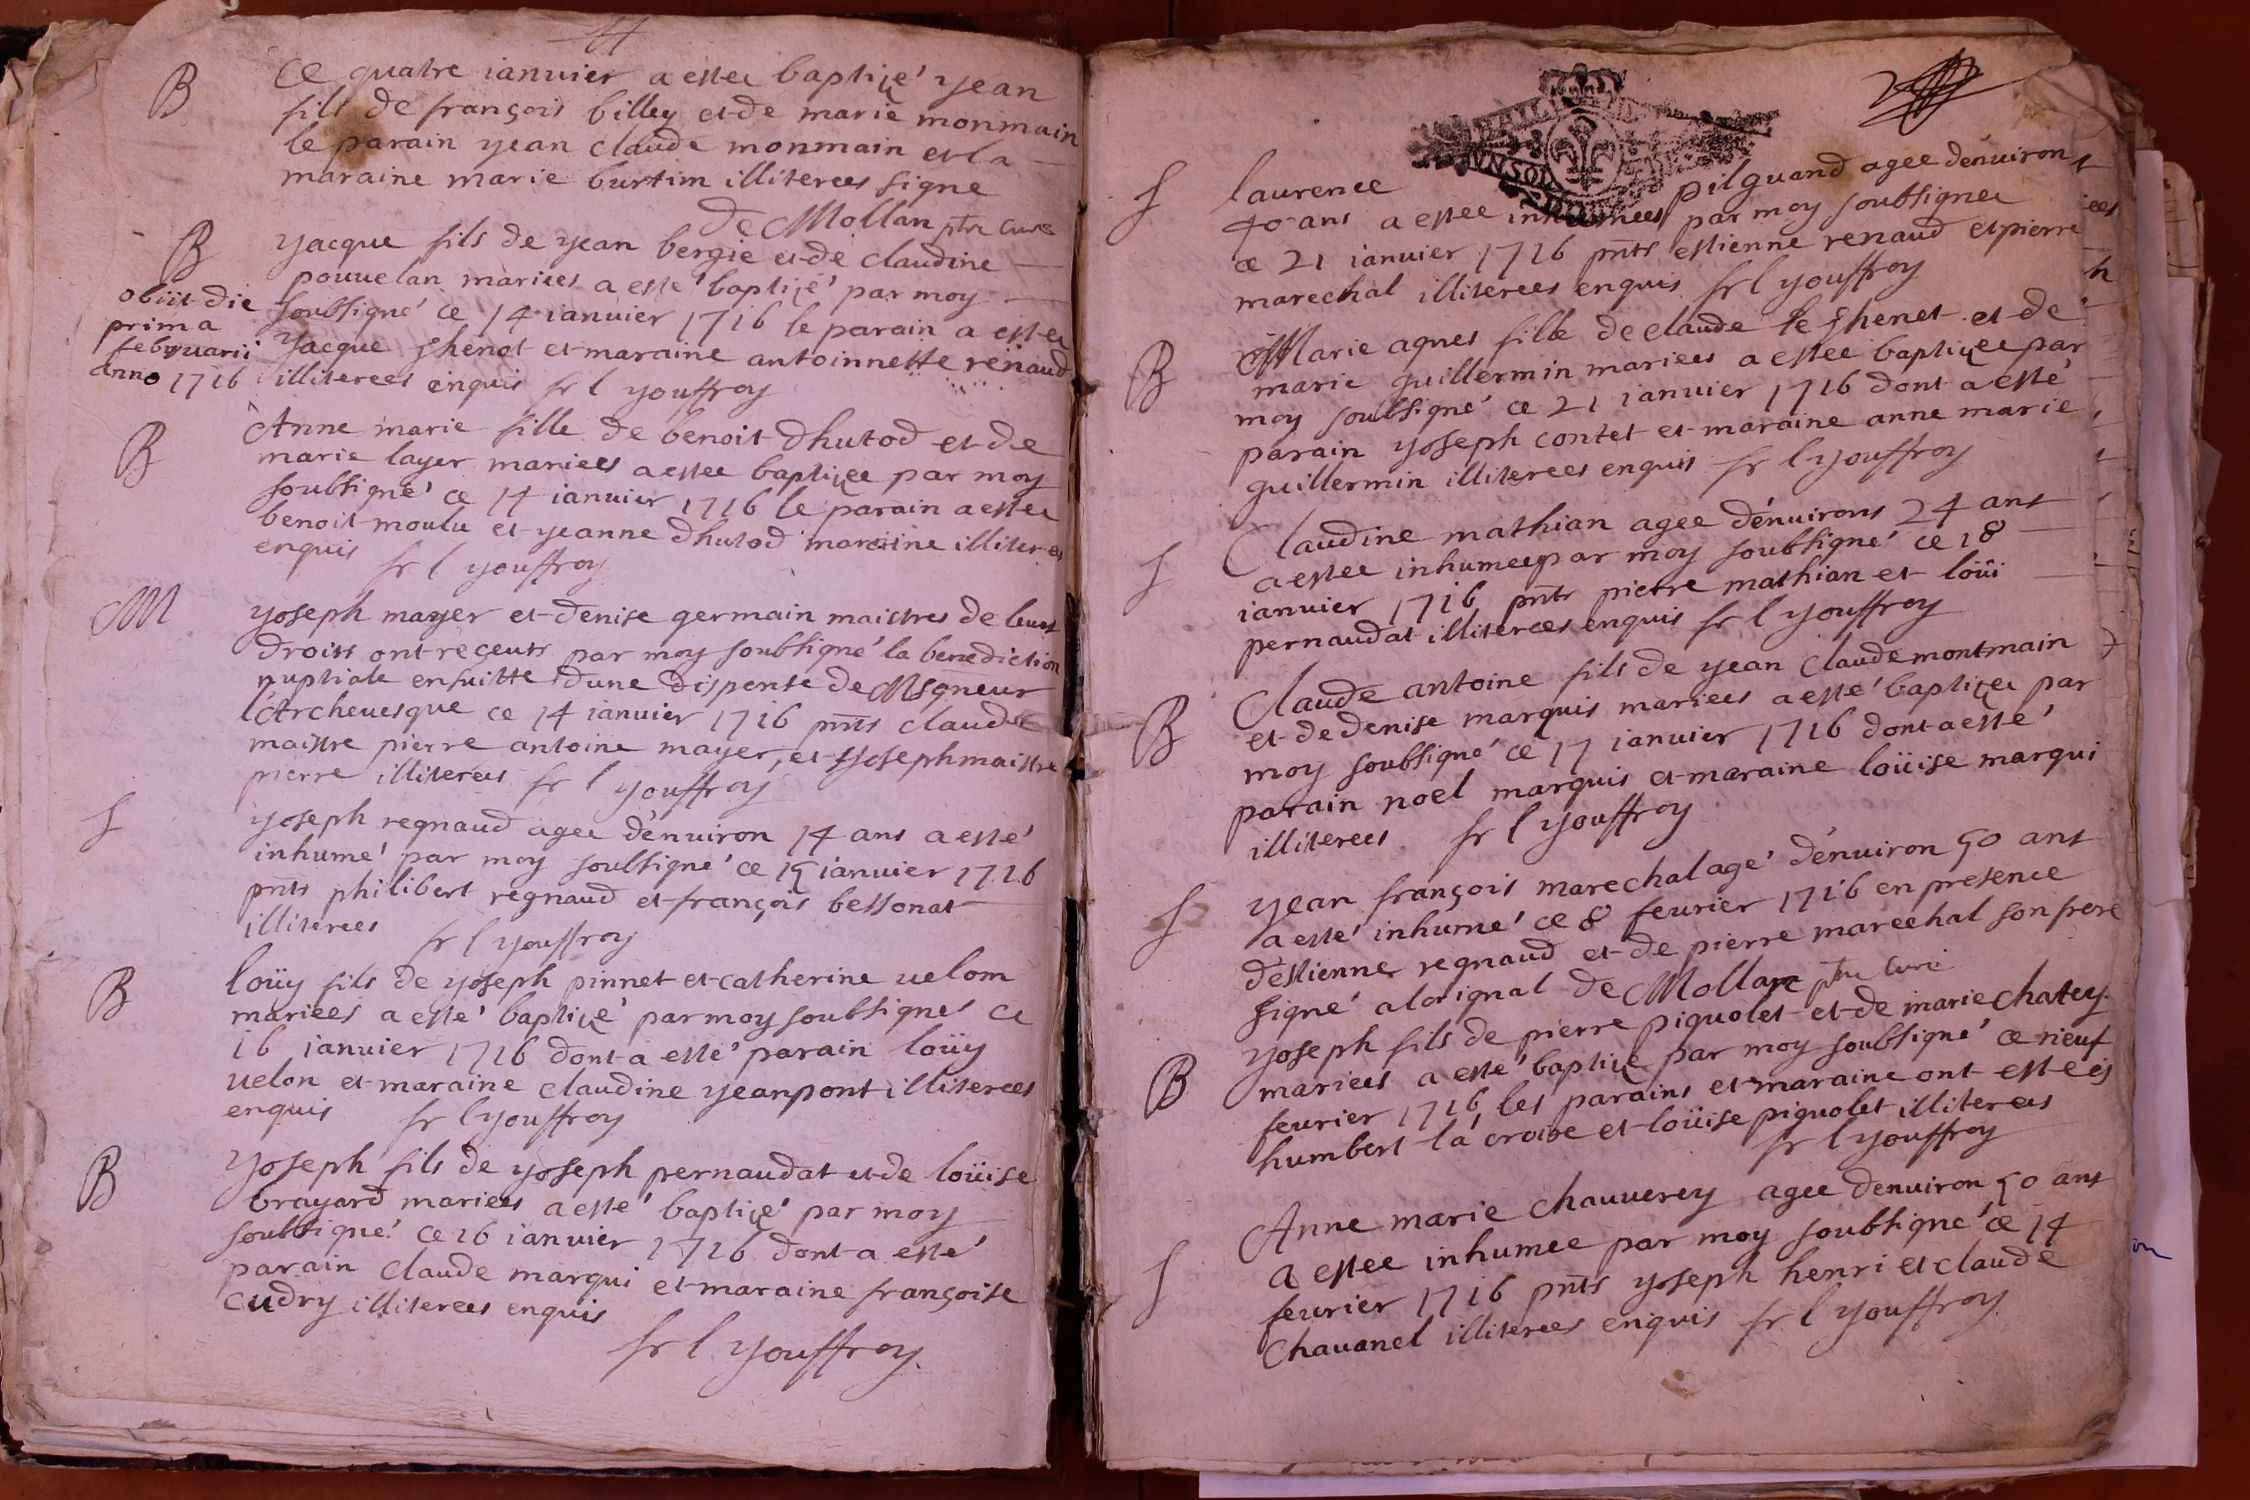 B
Ce quatre ianvier a estee baptizé yean
fils de françois billey et de marie monmain
le parain yean claude monmain et la
maraine marie burtim illiterees signe
De Mollan ptre curé
B
yacque fils de yean bergie et de claudine
pouuelan mariees a esté baptizé par moy
soubsigné ce 14 ianuier 1716 le parain a estee
yacque ghenot et maraine antoinnette renaud
illiterees enquis fr l youffroy
obiit die
prima
februarii
anno 1716
B
Anne marie fille de benoit dhutod et de
marie layer mariees a estee baptizee par moy
soubsigné ce 14 ianuier 1716 le parain a estee
benoit moulu et yeanne dhutod maraine illiterees
enquis fr l youffroy
M
yoseph mayer et denise germain maistres de leurs
droits ont receuts par moy soubsigné la benediction
nuptiale ensuitte dune dispense de Msgneur
l'Archeuesque ce 14 ianuier 1716 pnts claude
maistre pierre antoine mayer, et yoseph maistre
pierre illiterees fr l youffroy
S
yoseph regnaud agee d'enuiron 14 ans a esté
inhumé par moy soubsigné ce 15 ianuier 1716
pnts philibert regnaud et françois bessonat
illiterees fr l youffroy
B
loüy fils de yoseph pinnet et catherine uelom
mariees a esté baptizé par moy soubsignes ce
16 ianuier 1716 dont a esté parain loüy
uelon et maraine claudine yeanpont illiterees
enquis fr l youffroy
B
yoseph fils de yoseph pernaudat et de loüise
brayard mariees a esté baptizé par moy
soubsigné ce 16 ianuier 1716 dont a esté
parain claude marqui et maraine françoise
cudry illiterees enquis
fr l youffroy
S
laurence pilguand agee d'enuirons
40 ans a estee inhumees par moy soubsignee
ce 21 ianuier 1716 pnts estienne renaud et pierre
marechal illiterees enquis fr l youffroy
B
Marie agnes fille de claude le ghenet et de
marie guillermin mariees a estee baptizee par
moy soubsigné ce 21 ianuier 1716 dont a esté
parain yoseph contet et maraine anne marie
guillermin illiterees enquis fr l youffroy
S
Claudine mathian agee d'enuirons 24 ans
a estee inhumee par moy soubsigné ce 18
ianuier 1716 pnts pierre mathian et loüi
pernaudat illiterees enquis fr l youffroy
B
Claude antoine fils de yean claude montmain
et de denise marquis mariees a esté baptizee par
moy soubsigné ce 17 ianuier 1716 dont a esté
parain noel marquis et maraine loüise marqui
illiterees fr l youffroy
S
yean françois marechal agé d'enuiron 50 ans
a esté inhumé ce 8 feurier 1716 en presence
d'estienne regnaud et de pierre marechal son frere
signé a lorignal de Mollan ptre curé
B
yoseph fils de pierre piguolet et de marie chatey
mariees a esté baptizé par moy soubsigné ce nieuf
feurier 1716 les parains et maraine ont estees
humbert la croix et loüise piguolet illiterees
fr l youffroy
S
Anne marie chauuerey agee denuiron 50 ans
a estee inhumee par moy soubsigné ce 14
feurier 1716 pnts yoseph henri et claude
Chauanel illiterees enquis fr l youffroy